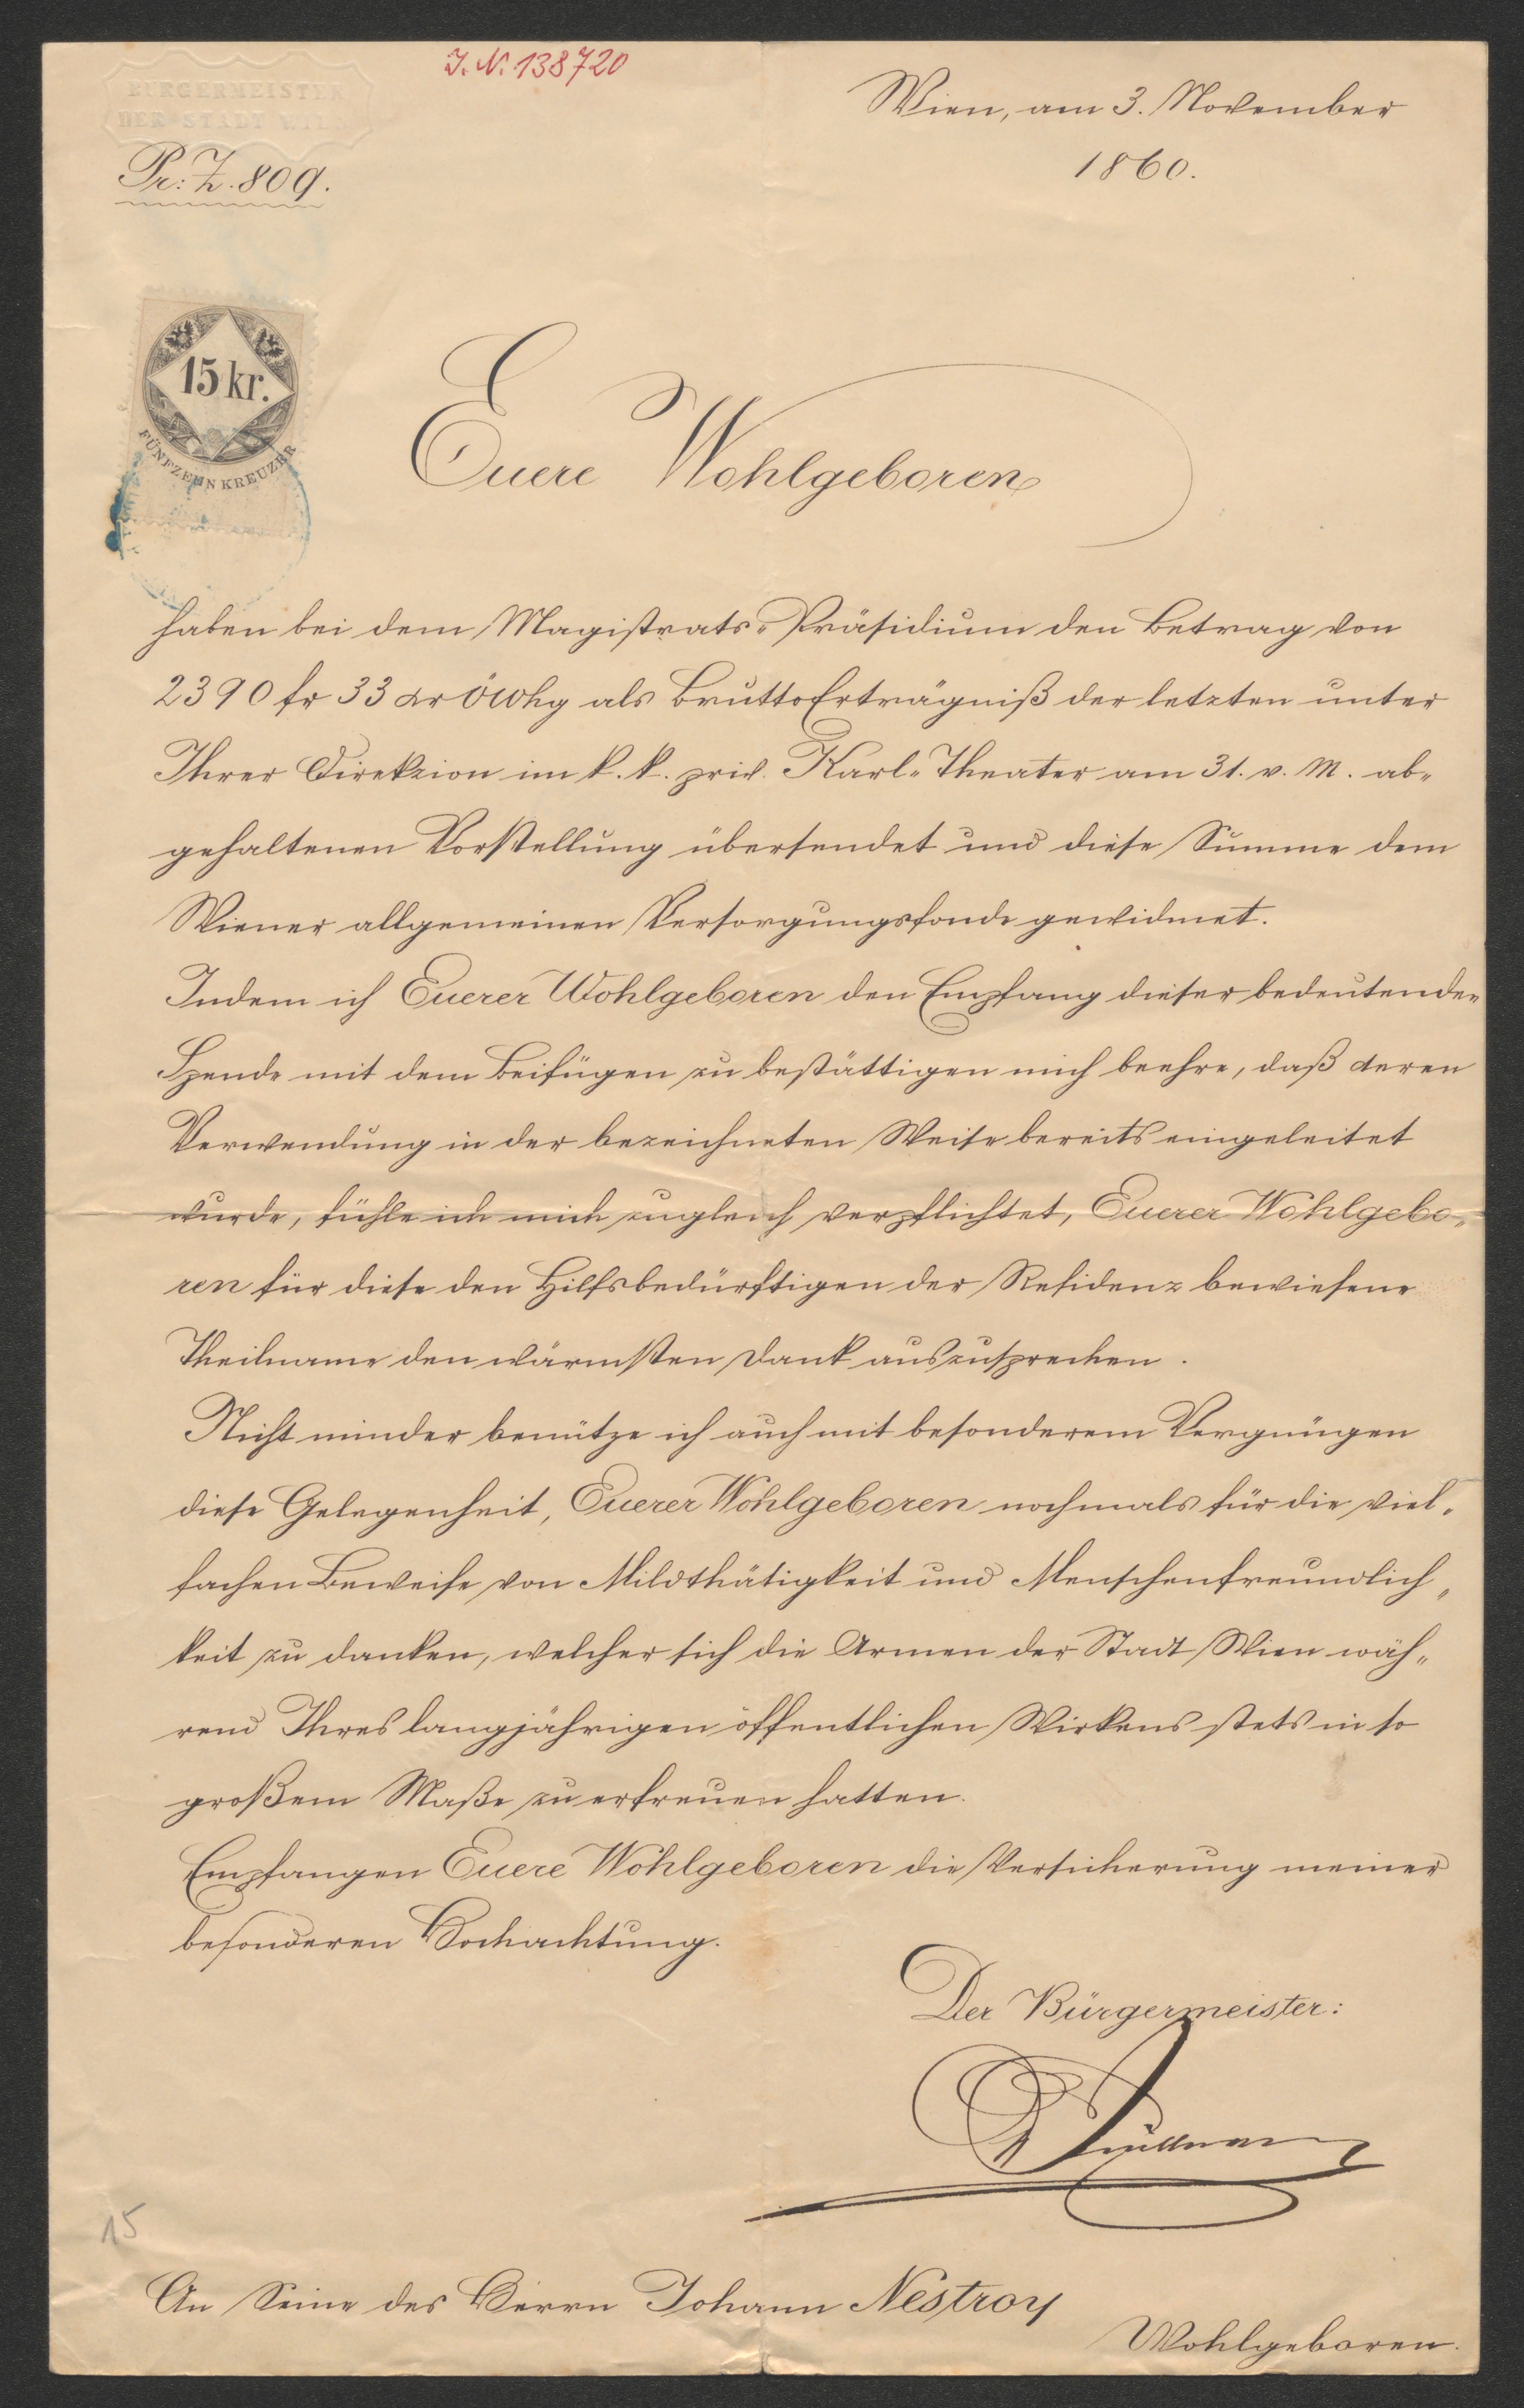 J. N. 138720
BÜRGERMEISTER
DER STADT WIEN
Wien, am 3. November
1860.
Pr: Z. 809.
15 kr.
FÜNFZEHN KREUZER
Euere Wohlgeboren
haben bei dem Magistrats-Präsidium den Betrag von
2390 fr 33 xr ÖWhg als Brutto Erträgniß der letzten unter
Ihrer Direkzion im k. k. priv. Karl-Theater am 31. v. M. ab-
gehaltenen Vorstellung übersendet und diese Summe dem
Wiener allgemeinen Versorgungsfonde gewidmet.
Indem ich Euerer Wohlgeboren den Empfang dieser bedeutenden
Spende mit dem Beifügen zu bestättigen mich beehre, daß deren
Verwendung in der bezeichneten Weise bereits eingeleitet
wurde, fühle ich mich zugleich verpflichtet, Euerer Wohlgebo-
ren für diese den Hilfsbedürftigen der Residenz bewiesene
Theilname den wärmsten Dank auszusprechen.
Nicht minder benütze ich auch mit besonderem Vergnügen
diese Gelegenheit, Euerer Wohlgeboren nochmals für die viel-
fachen Beweise von Mildthätigkeit und Menschenfreundlich-
keit zu danken, welcher sich die Armen der Stadt Wien wäh-
rend Ihres langjährigen öffentlichen Wirkens stets in so
großem Maße zu erfreuen hatten.
Empfangen Euere Wohlgeboren die Versicherung meiner
besonderen Hochachtung.
Der Bürgermeister:
15
An Seine des Herrn Johann Nestroy
Wohlgeboren.